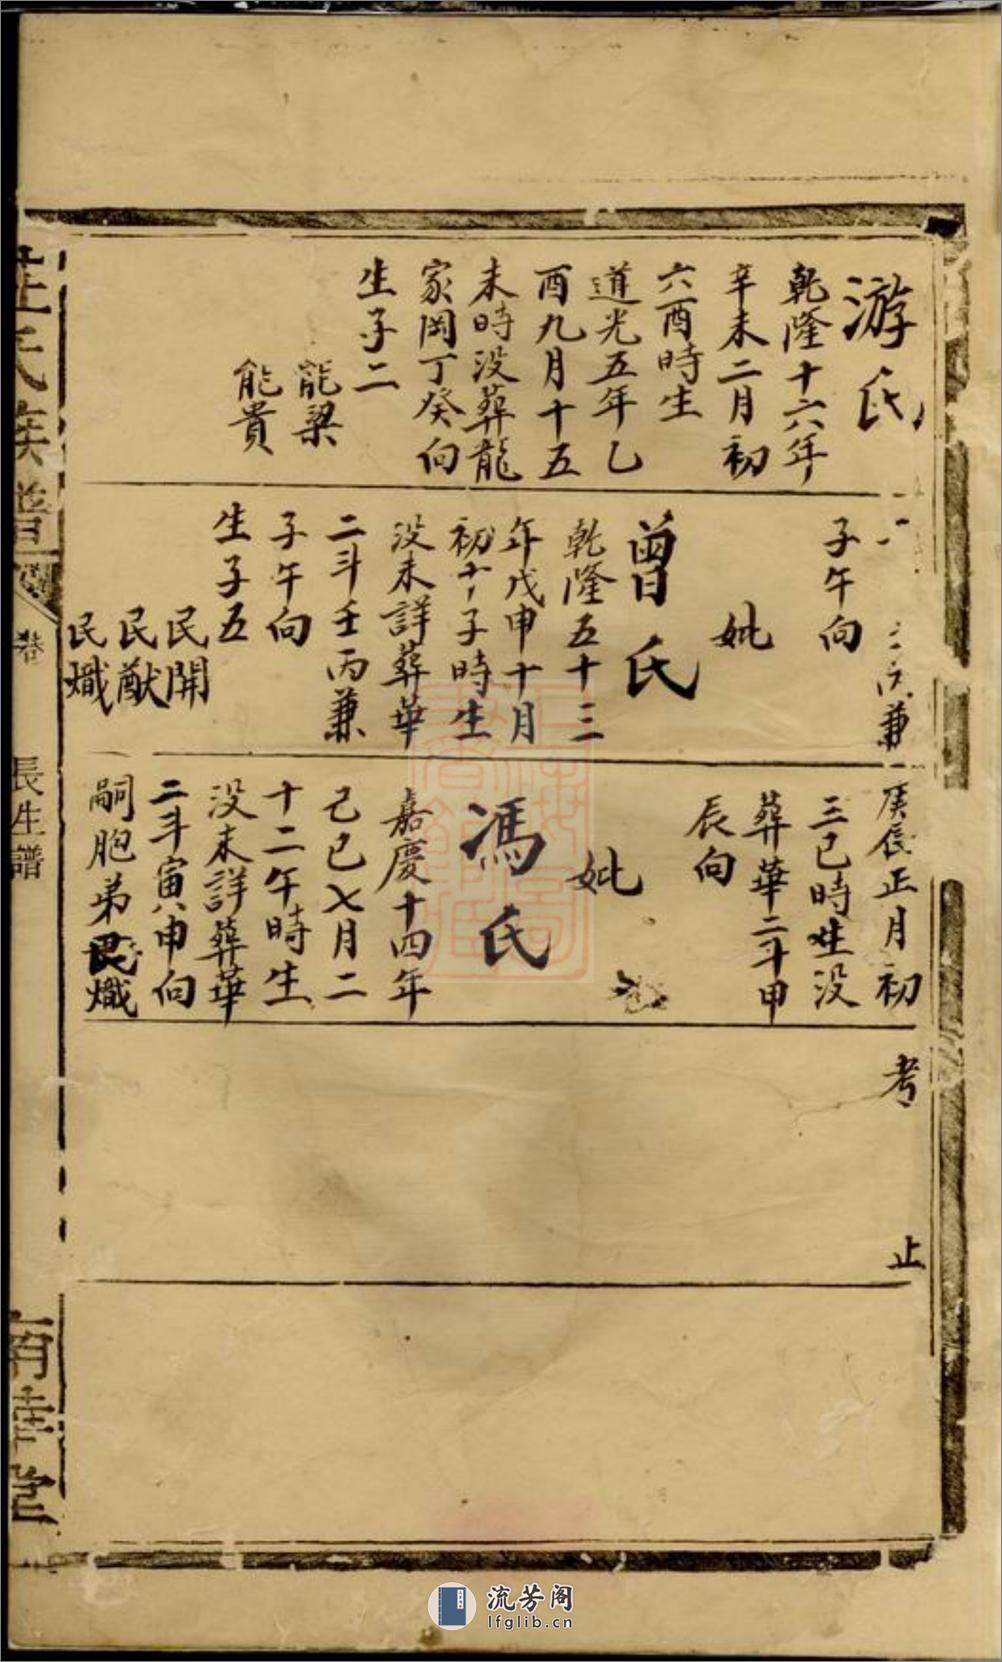 游氏
乾隆十六年
辛未二月初
六酉時生
道光五年乙
酉九月十五
未時没葬龍
家岡丁癸向
生子二
能梁
能貴
兼
子午向
妣
曾氏
乾隆五十三
年戊申十月
初十子時生
没未詳葬華
二斗壬丙兼
子午向
生子五
民開
民猷
民熾
庚辰正月初
三巳時生没
葬華二斗甲
辰向
妣
馮氏
嘉慶十四年
己巳七月二
十二午時生
没未詳葬華
二斗寅申向
嗣胞弟民熾
考
止
氏族譜
卷
長生譜
堂
流芳阁
lfglib.cn